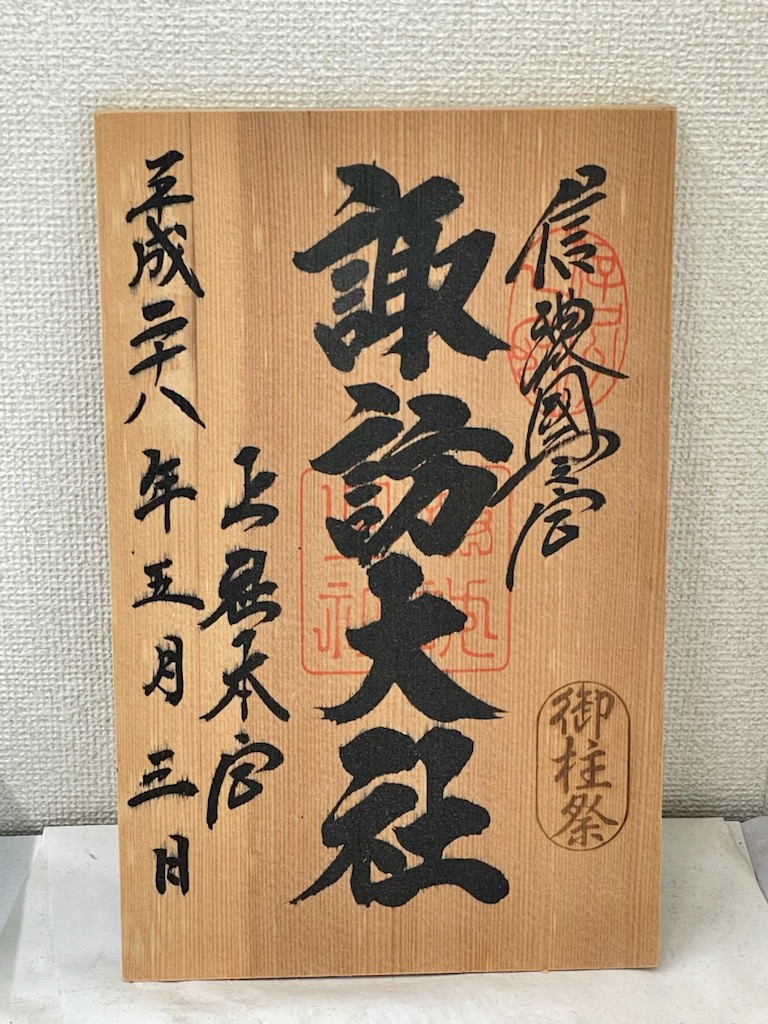 信濃國一之宮
御柱祭
諏訪大社
上社本宮
平成二十八年五月三日